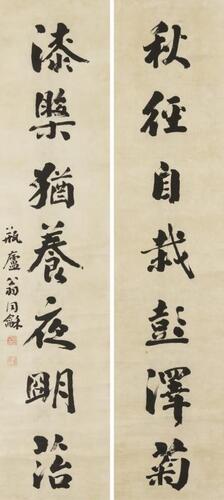 秋徑自栽彭澤菊
漆槃猶養夜朙芝
瓶廬翁同龢